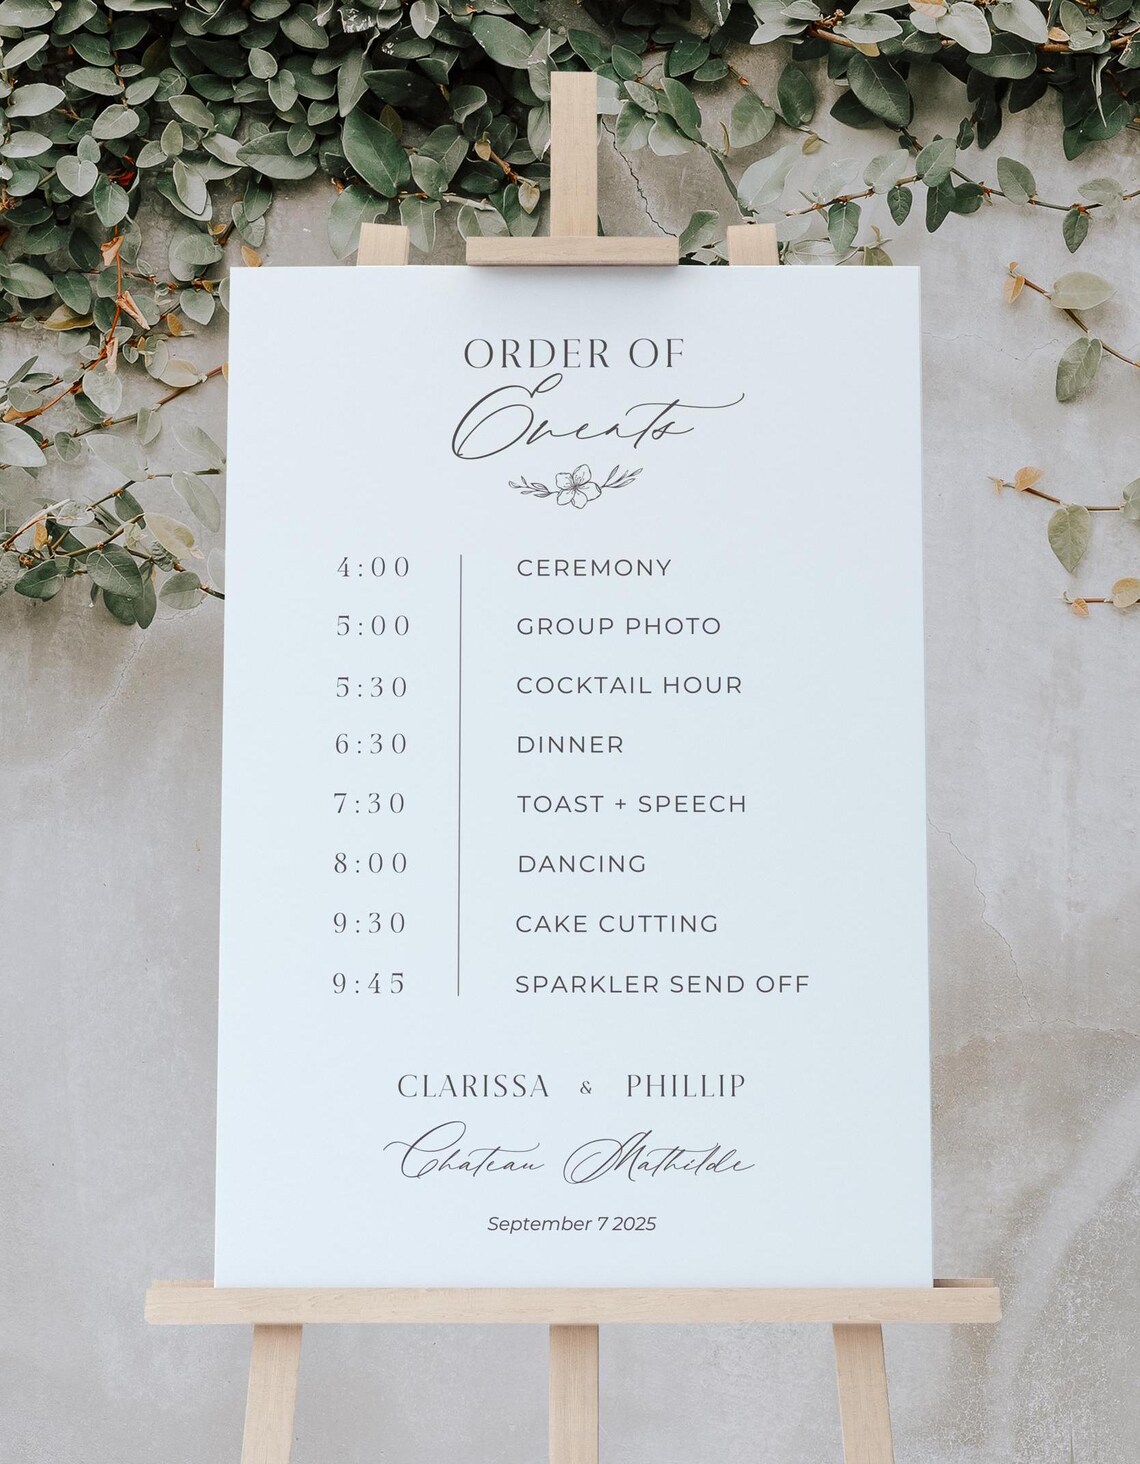 ORDER OF
Events
4:00 CEREMONY
5:00 GROUP PHOTO
5:30 COCKTAIL HOUR
6:30 DINNER
7:30 TOAST + SPEECH
8:00 DANCING
9:30 CAKE CUTTING
9:45 SPARKLER SEND OFF
CLARISSA & PHILLIP
Chateau Mathilde
September 7 2025